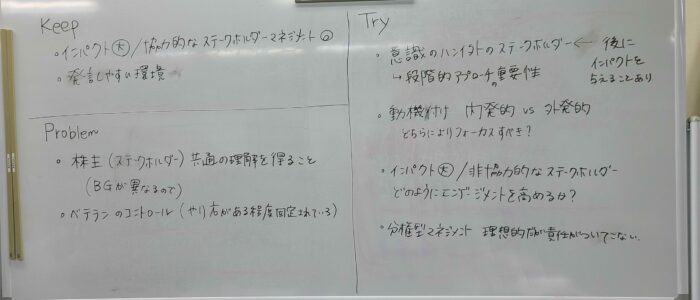 Keep
・インパクト大/協力的なステークホルダーマネジメント
・発言しやすい環境
Problem
・株主(ステークホルダー)共通の理解を得ること
(BGが異なるので)
・ベテランのコントロール(やり方がある程度固定されている)
Try
・意識のハンイ外のステークホルダー← 後に
インパクトを
与えることあり
↳段階的アプローチの重要性
・動機付け 内発的 vs 外発的
どちらによりフォーカスすべき?
・インパクト大/非協力的なステークホルダー
どのようにエンゲージメントを高めるか?
・分権型マネジメント 理想的だが責任がついてこない.